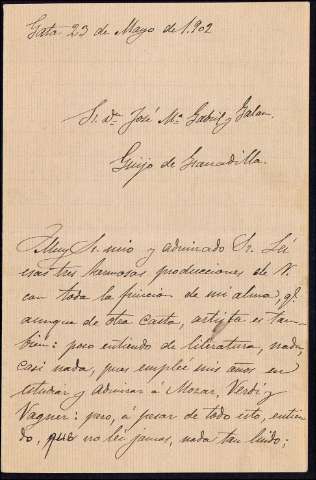 Gata 23 de Mayo de 1.902
Sr. Dn. José Mª Gabriel y Galan.
Guijo de Granadilla.
Muy Sr. mio y admirado Sr. Lei
esas tres hermosas producciones de V.
con toda la fruicion de mi alma, qe.
aunque de otra casta, artista es tam-
bien: poco entiendo de literatura, nada,
casi nada, pues empleé mis años en
estudiar y admirar á Mozar, Verdi y
Vagner: pero, á pesar de todo esto, entien-
do, que no lei jamas, nada tan lindo;